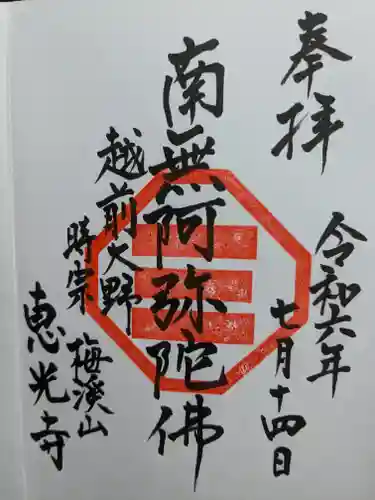 奉拝
令和六年
七月十四日
南無阿弥陀佛
越前大野
時宗 梅溪山
恵光寺